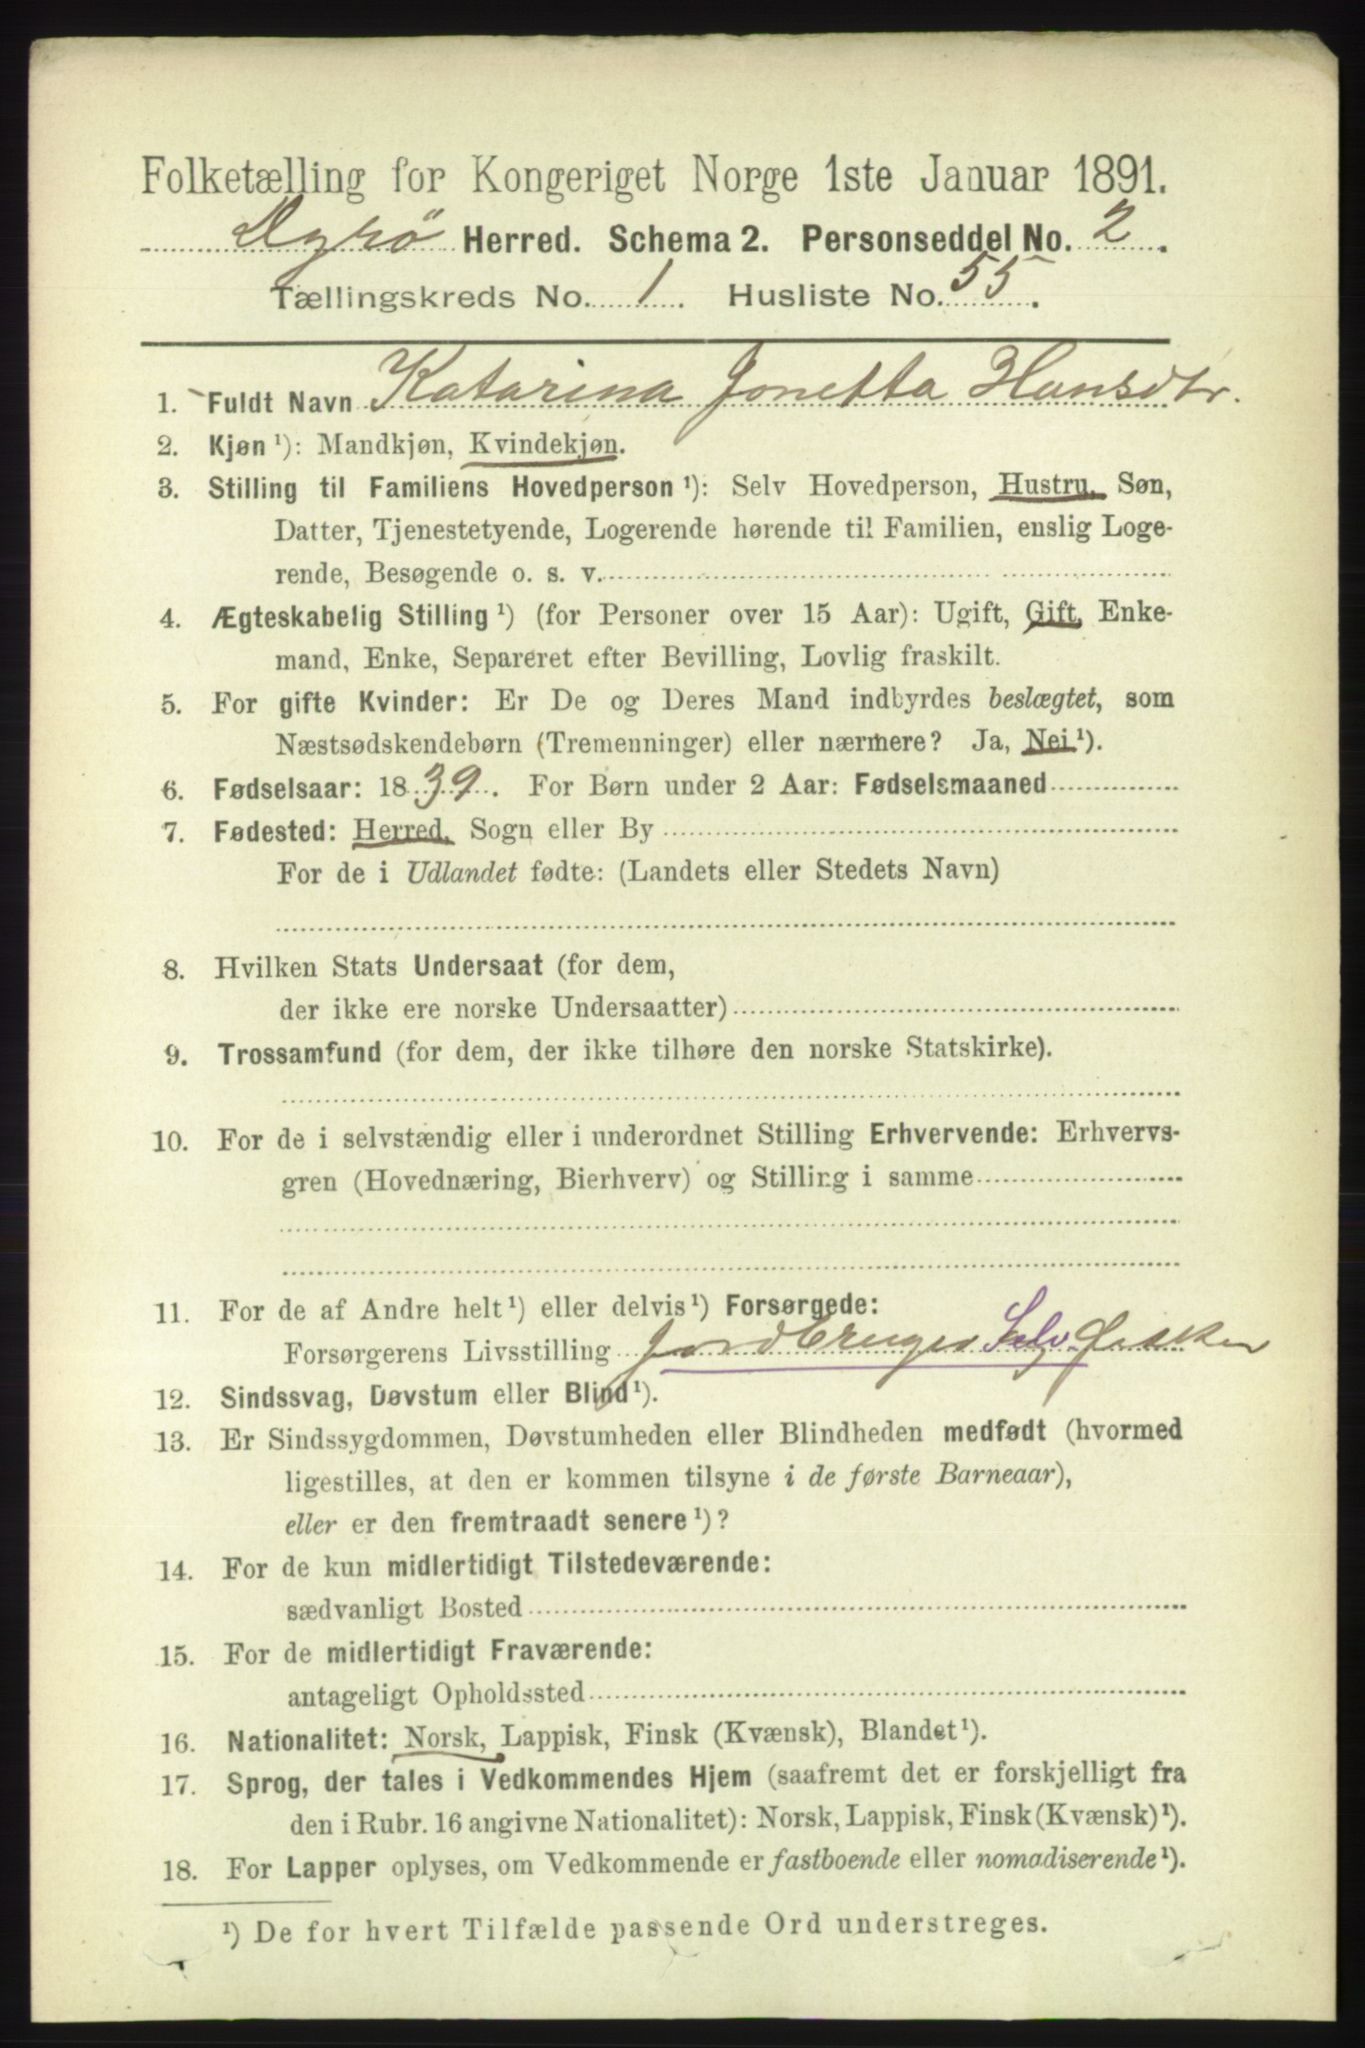 Folketælling for Kongeriget Norge 1ste Januar 1891.
Dyrø Herred. Schema 2. Personseddel No. 2.
Tællingskreds No. 1. Husliste No. 55.
1. Fuldt Navn Katarina Jonetta Hansdtr.
2. Kjøn ¹): Mandkjøn, Kvindekjøn.
3. Stilling til Familiens Hovedperson ¹): Selv Hovedperson, Hustru, Søn,
Datter, Tjenestetyende, Logerende hørende til Familien, enslig Loge-
rende, Besøgende o. s. v.
4. Ægteskabelig Stilling ¹) (for Personer over 15 Aar): Ugift, Gift, Enke-
mand, Enke, Separeret efter Bevilling, Lovlig fraskilt.
5. For gifte Kvinder: Er De og Deres Mand indbyrdes beslægtet, som
Næstsødskendebørn (Tremenninger) eller nærmere? Ja, Nei ¹).
6. Fødselsaar: 1839. For Børn under 2 Aar: Fødselsmaaned
7. Fødested: Herred, Sogn eller By
For de i Udlandet fødte: (Landets eller Stedets Navn)
8. Hvilken Stats Undersaat (for dem,
der ikke ere norske Undersaatter)
9. Trossamfund (for dem, der ikke tilhøre den norske Statskirke).
10. For de i selvstændig eller i underordnet Stilling Erhvervende: Erhvervs-
gren (Hovednæring, Bierhverv) og Stilling i samme
11. For de af Andre helt ¹) eller delvis ¹) Forsørgede:
Forsørgerens Livsstilling Jordbruger Selv Fisker
12. Sindssvag, Døvstum eller Blind ¹).
13. Er Sindssygdommen, Døvstumheden eller Blindheden medfødt (hvormed
ligestilles, at den er kommen tilsyne i de første Barneaar),
eller er den fremtraadt senere ¹)?
14. For de kun midlertidigt Tilstedeværende:
sædvanligt Bosted
15. For de midlertidigt Fraværende:
antageligt Opholdssted
16. Nationalitet: Norsk, Lappisk, Finsk (Kvænsk), Blandet ¹).
17. Sprog, der tales i Vedkommendes Hjem (saafremt det er forskjelligt fra
den i Rubr. 16 angivne Nationalitet): Norsk, Lappisk, Finsk (Kvænsk) ¹).
18. For Lapper oplyses, om Vedkommende er fastboende eller nomadiserende ¹).
¹) De for hvert Tilfælde passende Ord understreges.